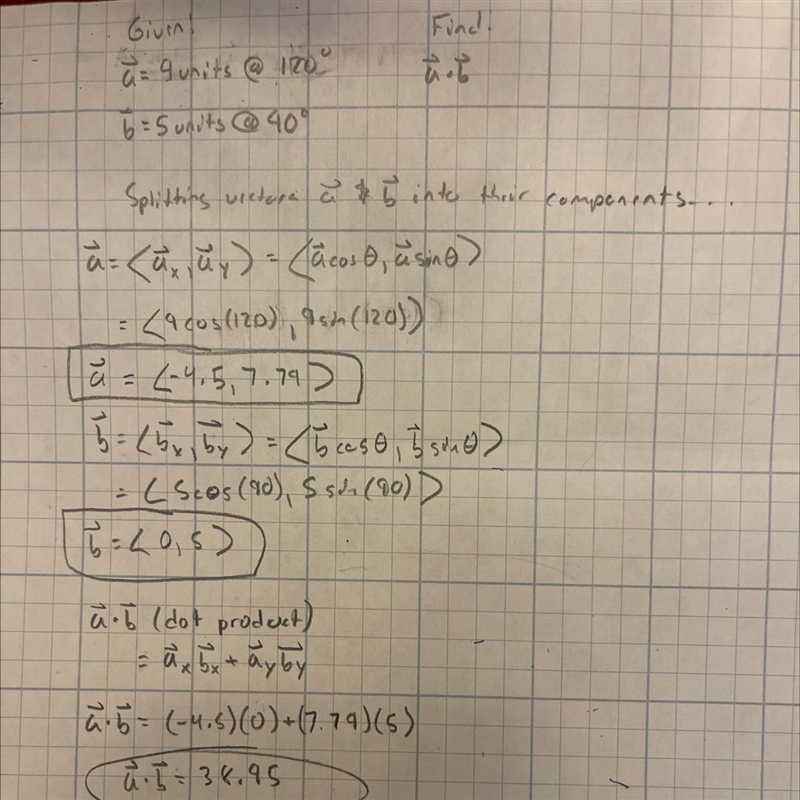 Given! Find!
a⃗ = 9 units @ 120° a⃗·b⃗
b⃗ = 5 units @ 90°
Splitting vectors a⃗ & b⃗ into their components...
a⃗ = ⟨a⃗ₓ, a⃗ᵧ⟩ = ⟨a⃗cosθ, a⃗sinθ⟩
= ⟨9cos(120), 9sin(120)⟩
a⃗ = ⟨-4.5, 7.79⟩
b⃗ = ⟨b⃗ₓ, b⃗ᵧ⟩ = ⟨b⃗cosθ, b⃗sinθ⟩
= ⟨5cos(90), 5sin(90)⟩
b⃗ = ⟨0, 5⟩
a⃗·b⃗ (dot product)
= a⃗ₓb⃗ₓ + a⃗ᵧb⃗ᵧ
a⃗·b⃗ = (-4.5)(0)+(7.79)(5)
a⃗·b⃗ = 38.95